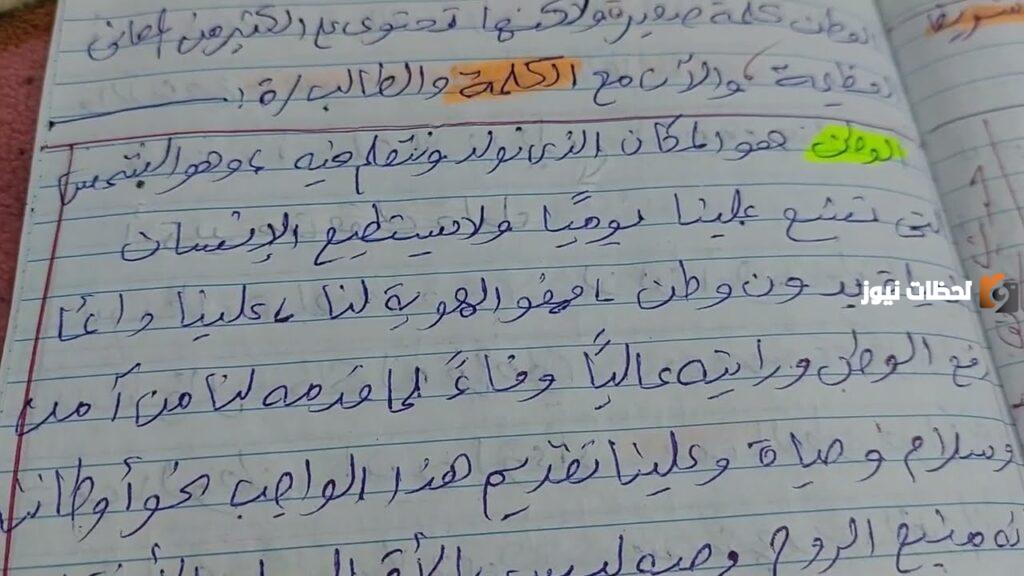 الوطن كلمة صغيرة ولكنها تحتوى على الكثير من المعانى
العظيمة والآن مع الكلمة والطالب/ة :
الوطن هو المكان الذى نولد ونتعلم فيه ، وهو الشمس
التى تشع علينا يوميًا ولا يستطيع الإنسان
البقاء بدون وطن ، فهو الهوية لنا ، علينا دائمًا
رفع الوطن ورايته عاليًا وفاءً لما قدمه لنا من آمن
وسلام وحياة وعلينا تقديم هذا الواجب نحو أوطاننا
منبع الروح ومنه
لحظات نيوز